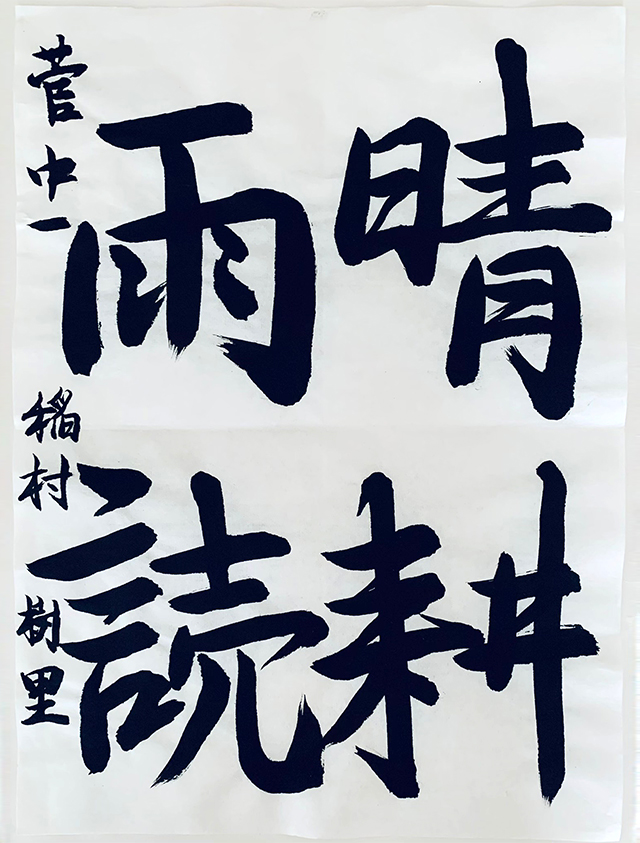 晴耕
雨読
菅中一 稲村 樹里